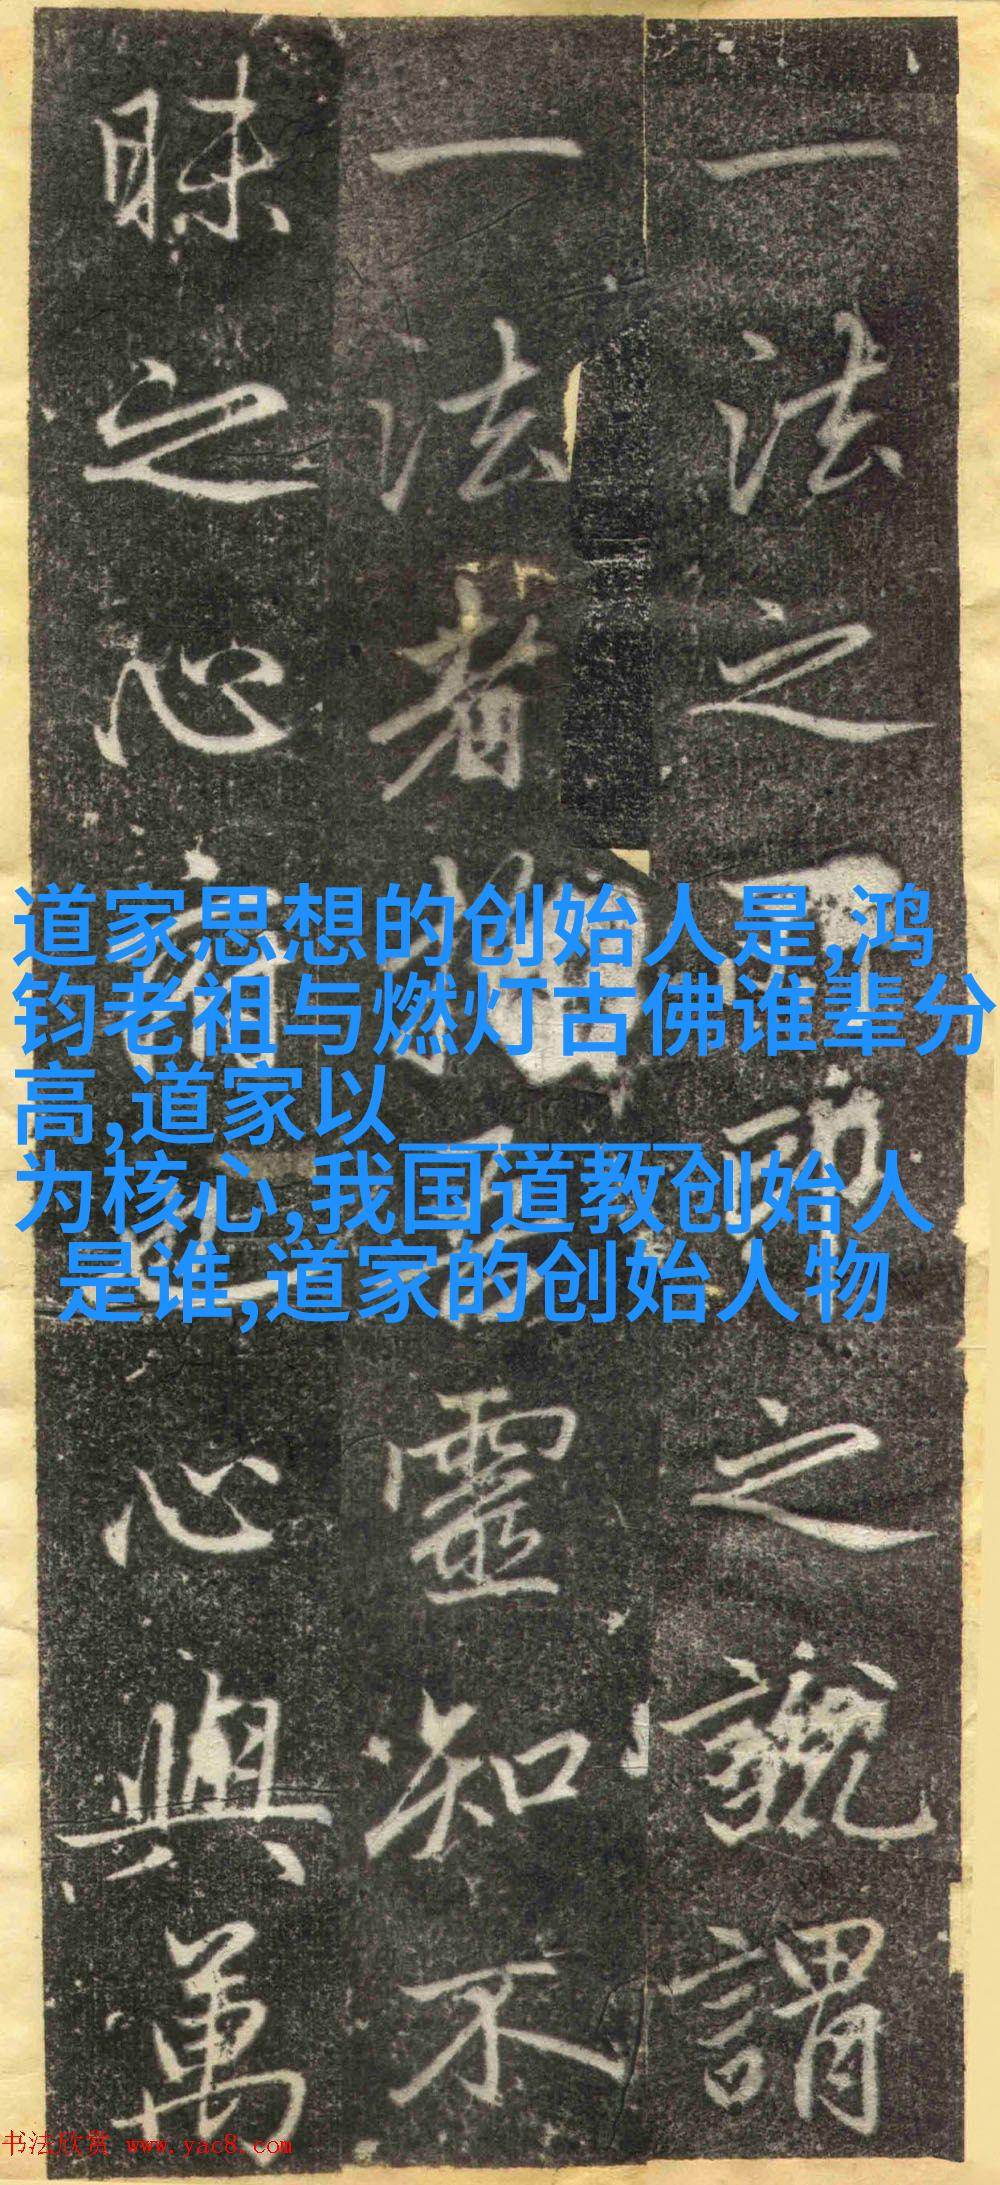 一法之之謂
一法者靈知不
昧之心心與萬
道家思想的创始人是,鸿
钧老祖与燃灯古佛谁辈分
高,道家以_______
为核心,我国道教创始人
是谁,道家的创始人物
书法欣赏 www.yac8.com